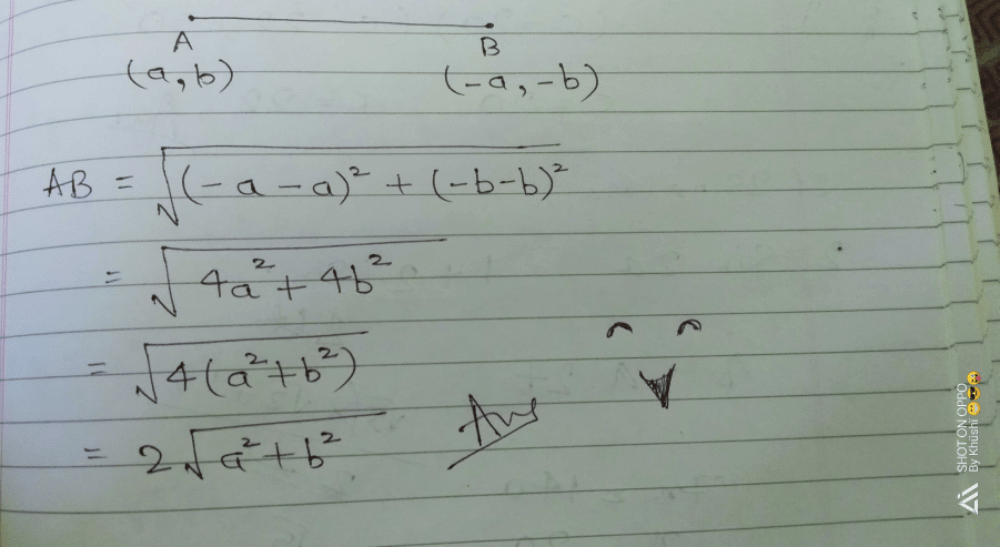 A B
(a, b) (-a, -b)
AB = √(-a - a)² + (-b-b)²
= √4a² + 4b²
= √4(a²+b²)
= 2√a²+b² Ans
SHOT ON OPPO
By Khushi